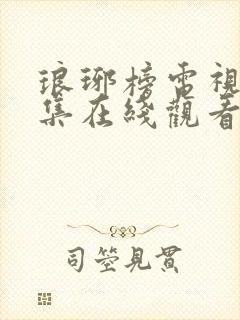 琅琊榜電視
集在綫觀看
司箜見貫